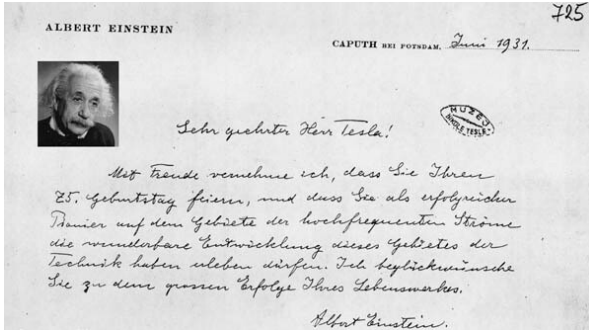 725
ALBERT EINSTEIN
CAPUTH BEI POTSDAM, Juni 1931.
MUZEJ
NIKOLE TESLE
Sehr geehrter Herr Tesla!
Mit Freude vernehme ich, dass Sie Ihren
75. Geburtstag feiern, und dass Sie als erfolgreicher
Pionier auf dem Gebiete der hochfrequenten Ströme
die wunderbare Entwicklung dieses Gebietes der
Technik haben erleben dürfen. Ich beglückwünsche
Sie zu dem grossen Erfolge Ihres Lebenswerkes.
Albert Einstein.